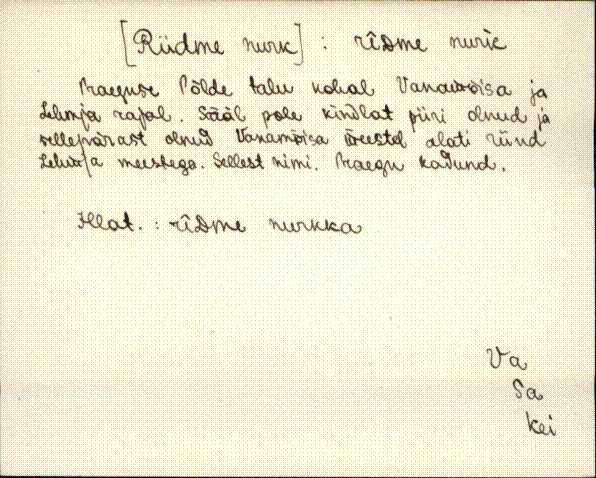 [Rüdme nurk] : rîDme nurk
Praeguse Põlde talu kohal Vanamõisa ja
Lehmja rajal. Sääl pole kindlat piiri olnud ja
sellepärast olnud Vanamõisa meestel alati riind
Lehmja meestega. Sellest nimi. Praegu kadund.
Illat. : rîDme nurkka
Va
Sa
Kei